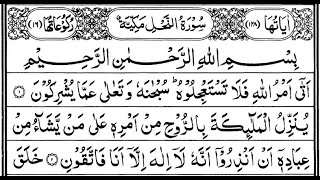 اٰيَاتُهَا (١٢٨) سُوْرَةُ النَّحْلِ مَكِّيَّةٌ رُكُوْعَاتُهَا (١٦)
بِسْمِ اللهِ الرَّحْمٰنِ الرَّحِيْمِ
اَتٰٓى اَمْرُ اللهِ فَلَا تَسْتَعْجِلُوْهُ ؕ سُبْحٰنَهٗ وَتَعٰلٰى عَمَّا يُشْرِكُوْنَ ۝
يُنَزِّلُ الْمَلٰٓئِكَةَ بِالرُّوْحِ مِنْ اَمْرِهٖ عَلٰى مَنْ يَّشَآءُ مِنْ
عِبَادِهٖٓ اَنْ اَنْذِرُوْٓا اَنَّهٗ لَآ اِلٰهَ اِلَّآ اَنَا فَاتَّقُوْنِ ۝ خَلَقَ